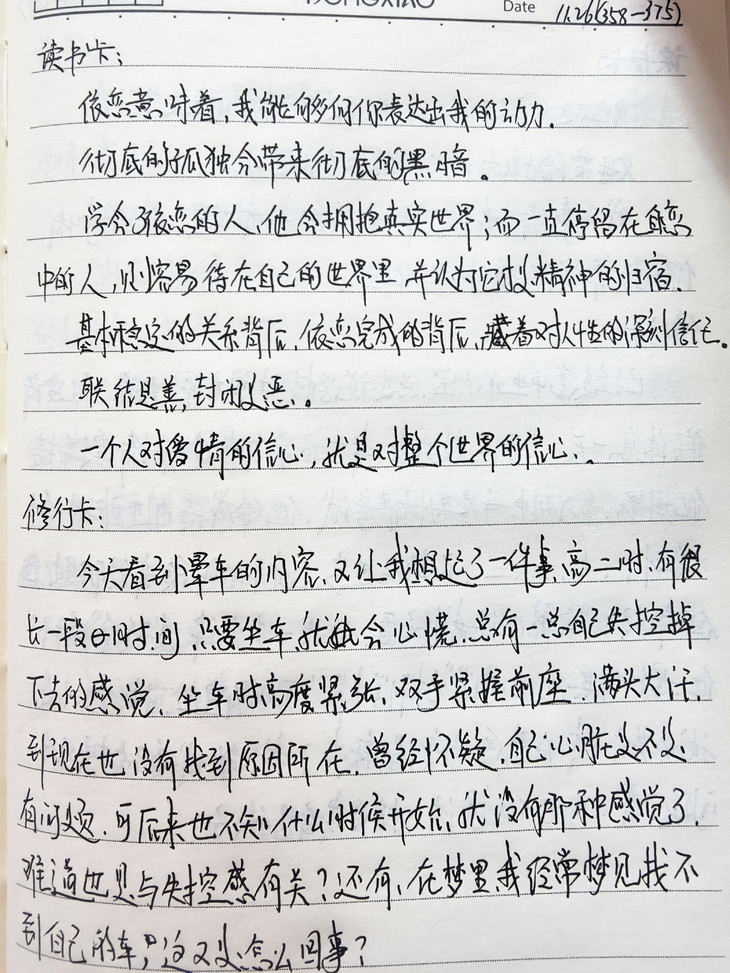 Date 11.26(358-375)
读书卡:
依恋意味着,我能够向你表达出我的动力.
彻底的孤独会带来彻底的黑暗。
学会了依恋的人,他会拥抱真实世界;而一直停留在自恋
中的人,则容易待在自己的世界里,并认为它是精神的归宿.
基本稳定的关系背后,依恋完成的背后,藏着对人性的深刻信任。
联结是善,封闭是恶。
一个人对爱情的信心,就是对整个世界的信心.
修行卡:
今天看到晕车的内容,又让我想起了一件事,高二时,有很
长一段的时间,只要坐车,就会心慌,总有一总自己失控掉
下去的感觉,坐车时高度紧张,双手紧握前座,满头大汗,
到现在也没有找到原因所在,曾经怀疑,自己心脏是不是
有问题,可后来也不知什么时候开始,就没有那种感觉了,
难道也是与失控感有关?还有,在梦里我经常梦见找不
到自己的车,这又是怎么回事?